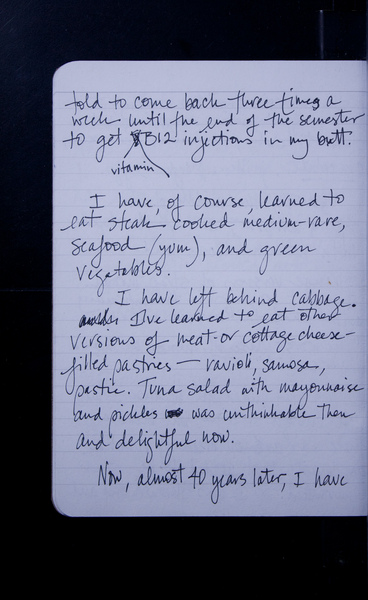 told to come back three times a
week until the end of the semester
to get B12 injections in my butt.
vitamin
I have, of course, learned to
eat steak cooked medium-rare,
seafood (yum), and green
vegetables.
I have left behind cabbage.
I've learned to eat other
versions of meat- or cottage cheese-
filled pastries — ravioli, samosa,
pastie. Tuna salad with mayonnaise
and pickles was unthinkable then
and delightful now.
Now, almost 40 years later, I have